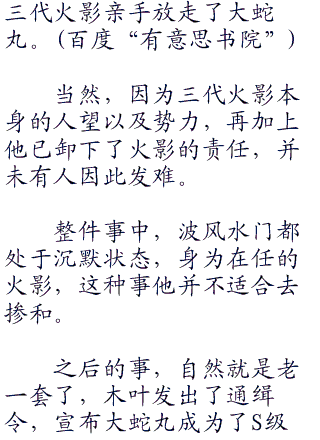 三代火影亲手放走了大蛇
丸。(百度“有意思书院”)
当然，因为三代火影本
身的人望以及势力，再加上
他已卸下了火影的责任，并
未有人因此发难。
整件事中，波风水门都
处于沉默状态，身为在任的
火影，这种事他并不适合去
掺和。
之后的事，自然就是老
一套了，木叶发出了通缉
令，宣布大蛇丸成为了S级